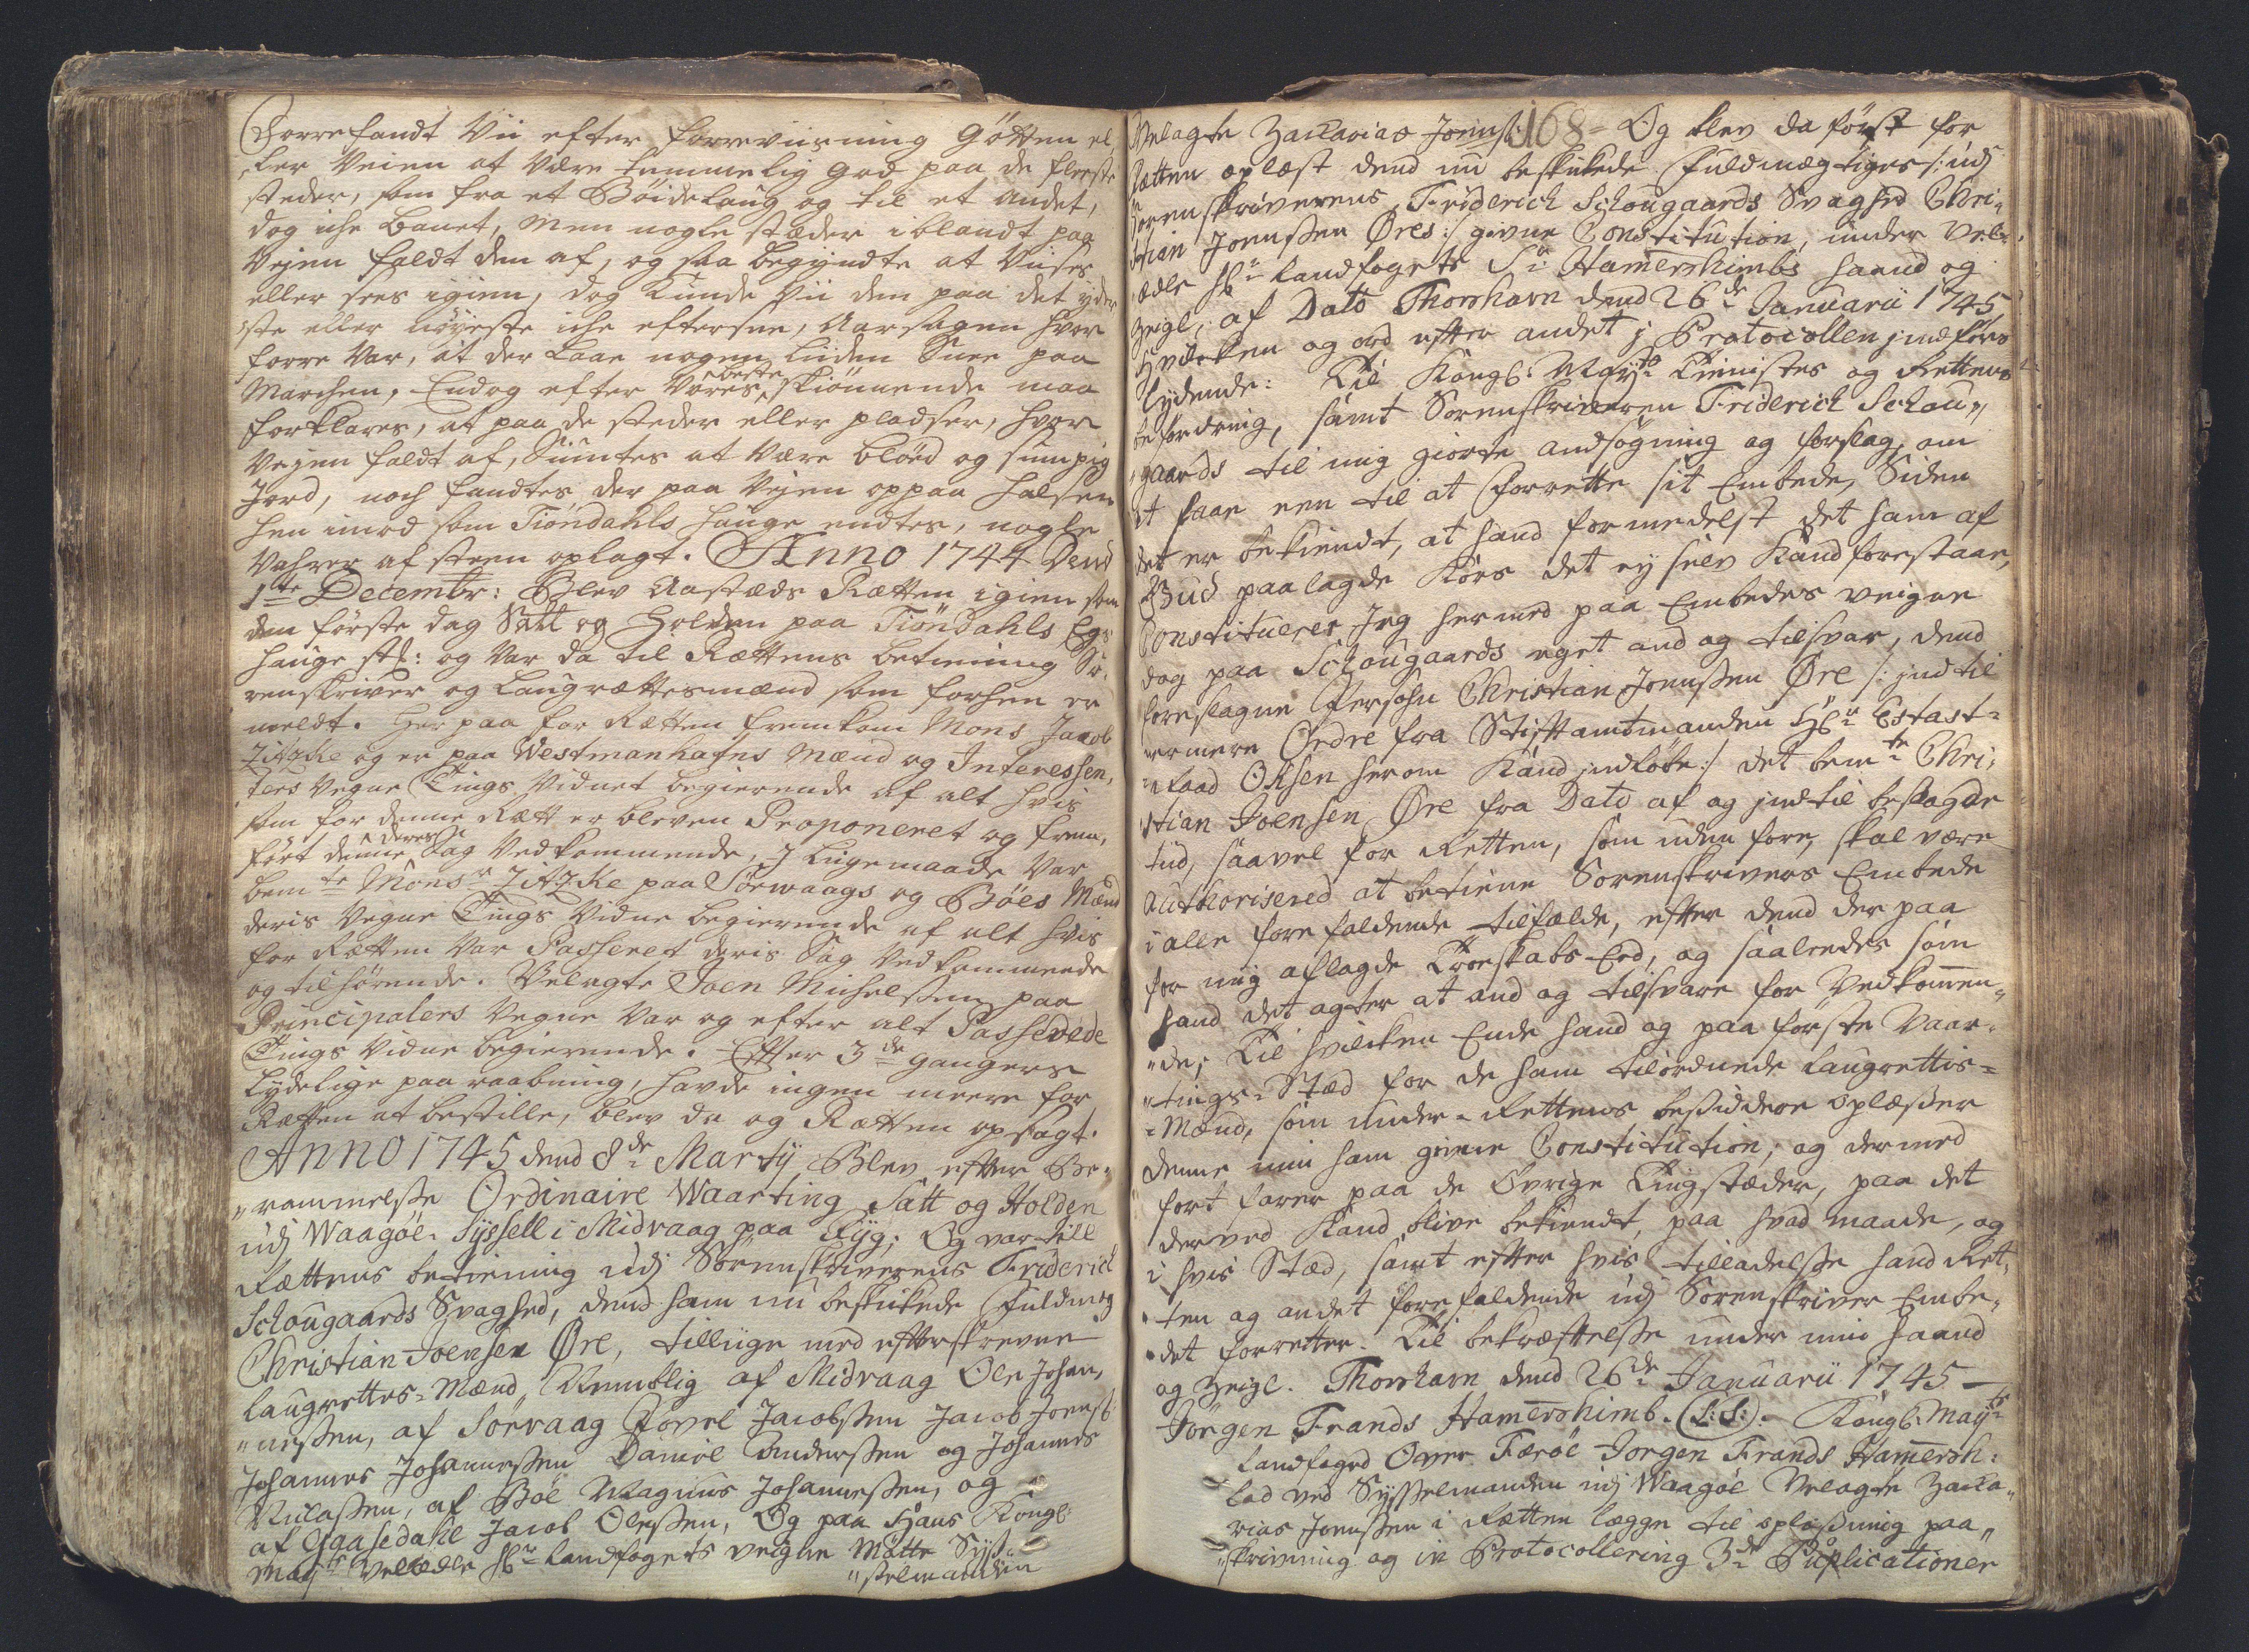 Dorre fandt Vii efter forreviisning Götten el,
ler Veien at Være temmelig god paa de fleeste
steder, som fra et Böidelaug og til et Andet,
dog icke banet, Men nogle stæder iblandt paa
Vejen faldt den af, og saa begyndte at Viises
eller sees igien, dog Kunde Vii den paa det ijder
ste eller nöyeste icke eftersee, Aarsagen hvor
forre Var, at der Laae nogen Liiden Snee paa
Marchen, Endog efter Vores beste skiönnende maa
forklares, at paa de steder eller pladser, hvor
Vejen faldt af, Siuntes at Være blöed og sumpig
Jord, noch fandtes der paa Vejen oppaa halsen
hen imod som Tiöndahls hauge endtes, nogle
Vahrer af steen oplagt. Anno 1744 Dend
1te Decembr: Blev Aastæds Rætten igien som
den förste dag Satt og Holden paa Tiöndahls Egs
hauge st: og Var da til Rættens betiening So,
renskriver og Laugrættesmænd som forhen er
meldt. Her paa for Rætten fremkom Mons Jacob
Zitzke og er paa Westmanhafns Mænd og Interessen,
ters Vegne Tings Vidnet begierende af alt hvis
som for denne Rætt er bleven Proponeret og frem,
fört denne deres Sag Vedkommende, J liigemaade Var
bemte Monsr Zitzke paa Sörwaags og Böes Mænd
deris Vegne Tings Vidne begierende af alt hvis
for Rætten Var Passeret deris Sag Vedkommende
og tilhörende. Velagte Joen Michelssen paa
Principalers Vegne Var og efter alt Passerede
Tings Vidne begierende. Efter 3de gangers
Lydelige paa raabning, havde ingen meere for
Rætten at bestille, blev da og Rætten opsagt.
Anno 1745 dend 8de Martij Blev efter Be,,
,,rammelsse Ordinaire Waarting Satt og Holden
udj Waagöe Sysſell i Midvaag paa Ryg; Og var till
Rættens betiening udj Sorenskriverens Friderich
Schougaards Svaghed, dend ham nu beskikede Fuldmæg
Christian Joensen Öre, tilliige med efterskrevne
laugrettes-Mænd, Nemblig af Midvaag Ole Johan,
,,nessen, af Sörvaag Povel Jacobssen Jacob Joenss:
Johannes Johannessen Daniel Anderssen og Johannes
Niclassen, af Böe Magnus Johannessen, og
af Gaasedahl Jacob Olessen, Og paa Hans Kongl:
Mayts Velædle Hr Landfogets veigne Mötte Syss-
,,selmanden
Velagte Zacharias Joenss: 168- Og blev da först for
Rætten oplæst dend nu beskikede Fuldmægtiges /: udj
Sorenskriverens Friderich Schougaards Svaghed Chri,
stian Joenssen Öres :/ givne Constitution, under Vel,
ædle Hr Landfogets Sr Hamershimbs haand og
Zeigl, af Dato Thorshavn dend 26de Januarii 1745,
Hvilcken og ord efter andet j Protocollen jndföres
lydende: Til Kongl: Mayts Tienistes og Rettens
befordring, samt Sorenskriveren Friderich Schou,,
,,gaards til mig giorte andsögning og forslag, om
at faae een til at forrette sit Embede, Siden
det er bekiendt, at hand formedelst det ham af
Gud paalagde Kors det ey selv Kand forestaae,
Constitueres Jeg hermed paa Embedes veigne
dog paa Schougaards eget and og tilsvar, dend
foreslagne Persohn Christian Joenssen Öre /: jndtil
nermere Ordre fra Stiftamtmanden Hr Estats-
raad Oksen herom Kand jndlöbe :/ det bemte Chri,
stian Joensen Öre fra Dato af og jndtil besagde
tiid, saavel for Retten, som uden fore, skal være
Authorisered at betiene Sorenskrivers Embede
i alle forefaldende tilfælde, efter dend der paa
for mig aflagde Troeskabs-Eed, og saaleedes som
hand det agter at and og tilsvare for Vedkommen,,
,,de; Til hvilcken Ende hand og paa förste Vaar-
,,tings-Stæd for de ham tilordnede Laugrettis-
-Mænd, som Under-Rettens besiddere oplæsser
denne min ham givne Constitution, og dermed
fort farer paa de Övrige Tingstæder, paa det
derved Kand blive bekiendt, paa hvad maade, og
i hvis Stæd, samt efter hvis tilladelsse hand Ret,
,,ten og andet forefaldende udj Sorenskriver Embe,,
,,det forretter. Til bekræftelsse under min haand
og Zeigl. Thorshavn dend 26de Januarii 1745 —
Jörgen Frands Hamershimb. (L:S:). Kongl: Mayts
Landfoged Over Færöe Jörgen Frands Hamersh:
lod ved Sysselmanden udj Waagöe Velagte Zacha,,
rias Joenssen i Rætten lægge til oplæssning paa,,
,,skrivning og in Protocollering 3de Puplicationer